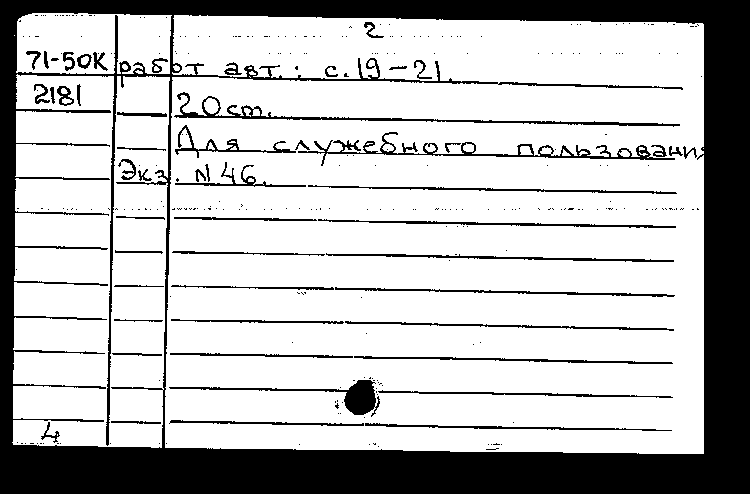 2
71-50К работ авт.: с.19-21.
2181 20 ст.
Для служебного пользования
Экз. N 46.
4